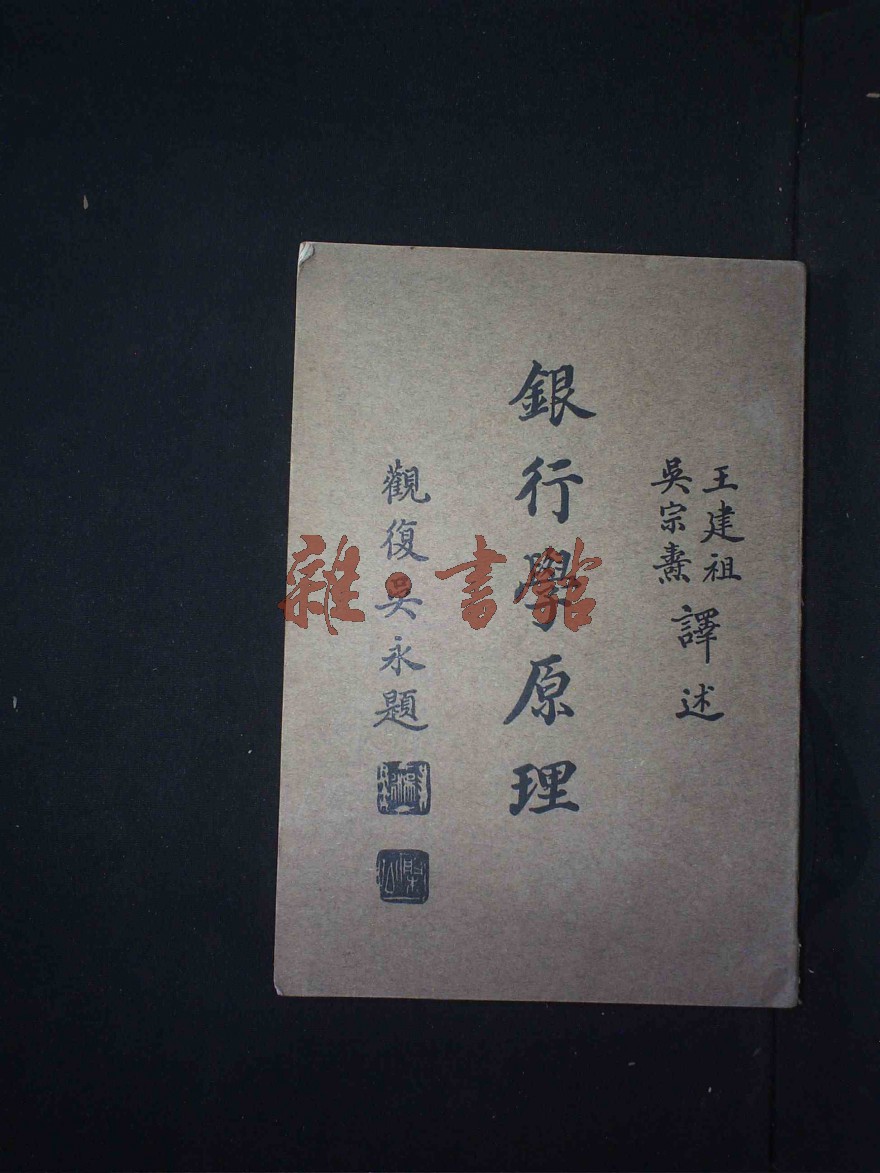 王建祖
吳宗燾
譯述
銀行學原理
觀復吳永題
雜·書館